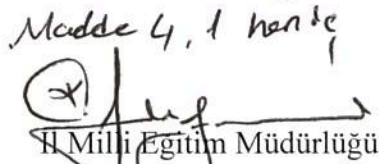 Madde 4, 1 hariç
İl Milli Eğitim Müdürlüğü